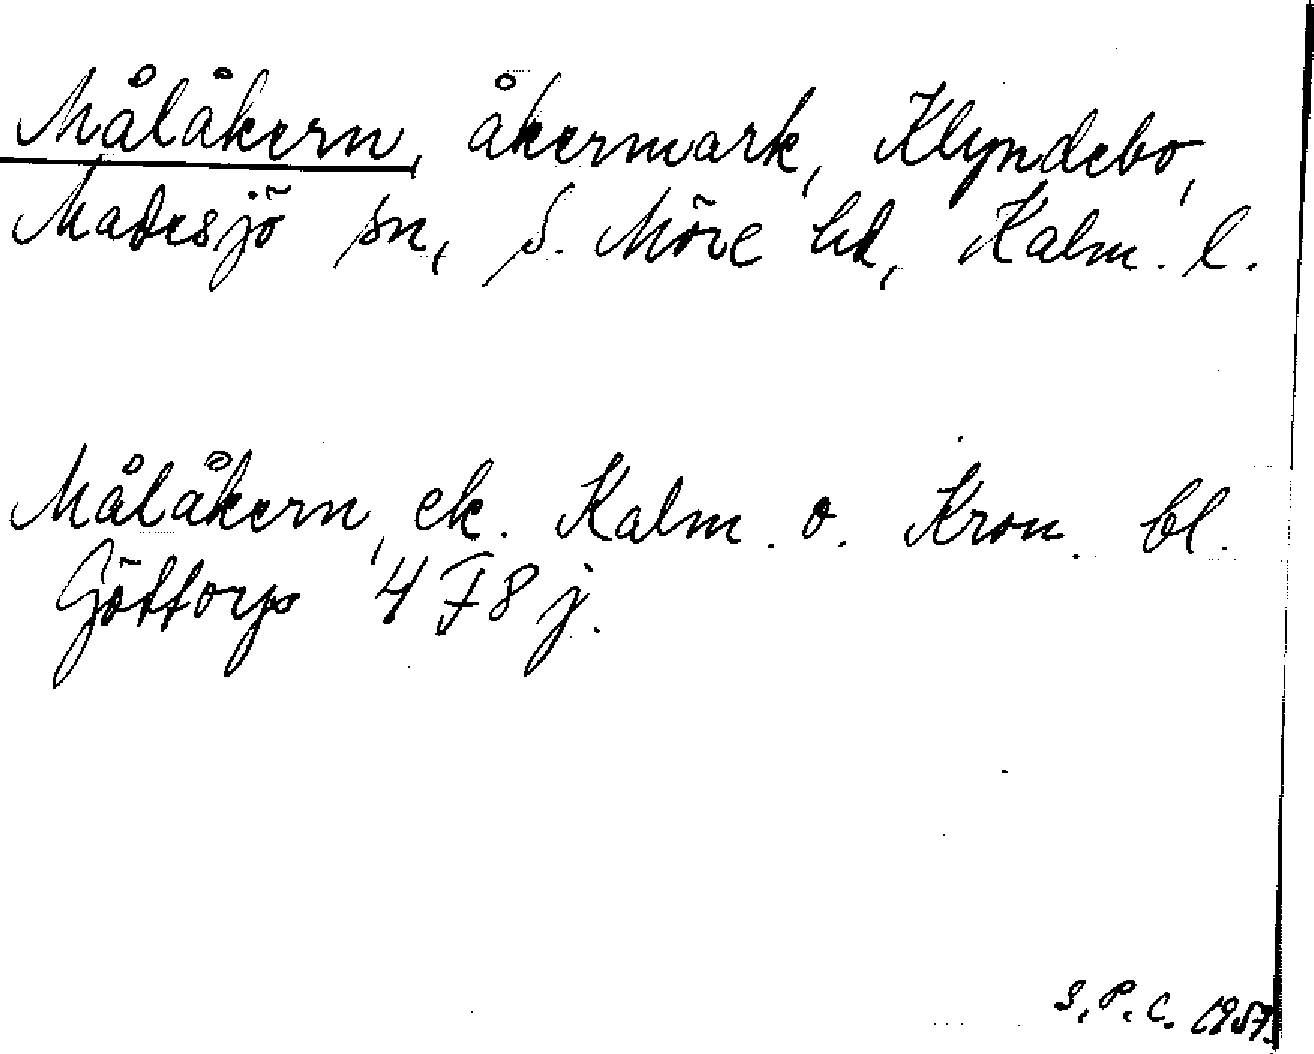 Målåkern, åkermark, Klyndebo,
Madesjö sn, S. Möre hd, Kalm. l.
Målåkern, ek. Kalm. o. Kron. bl.
Göttorp 4 F 8 j.
S. P. C. 1957.